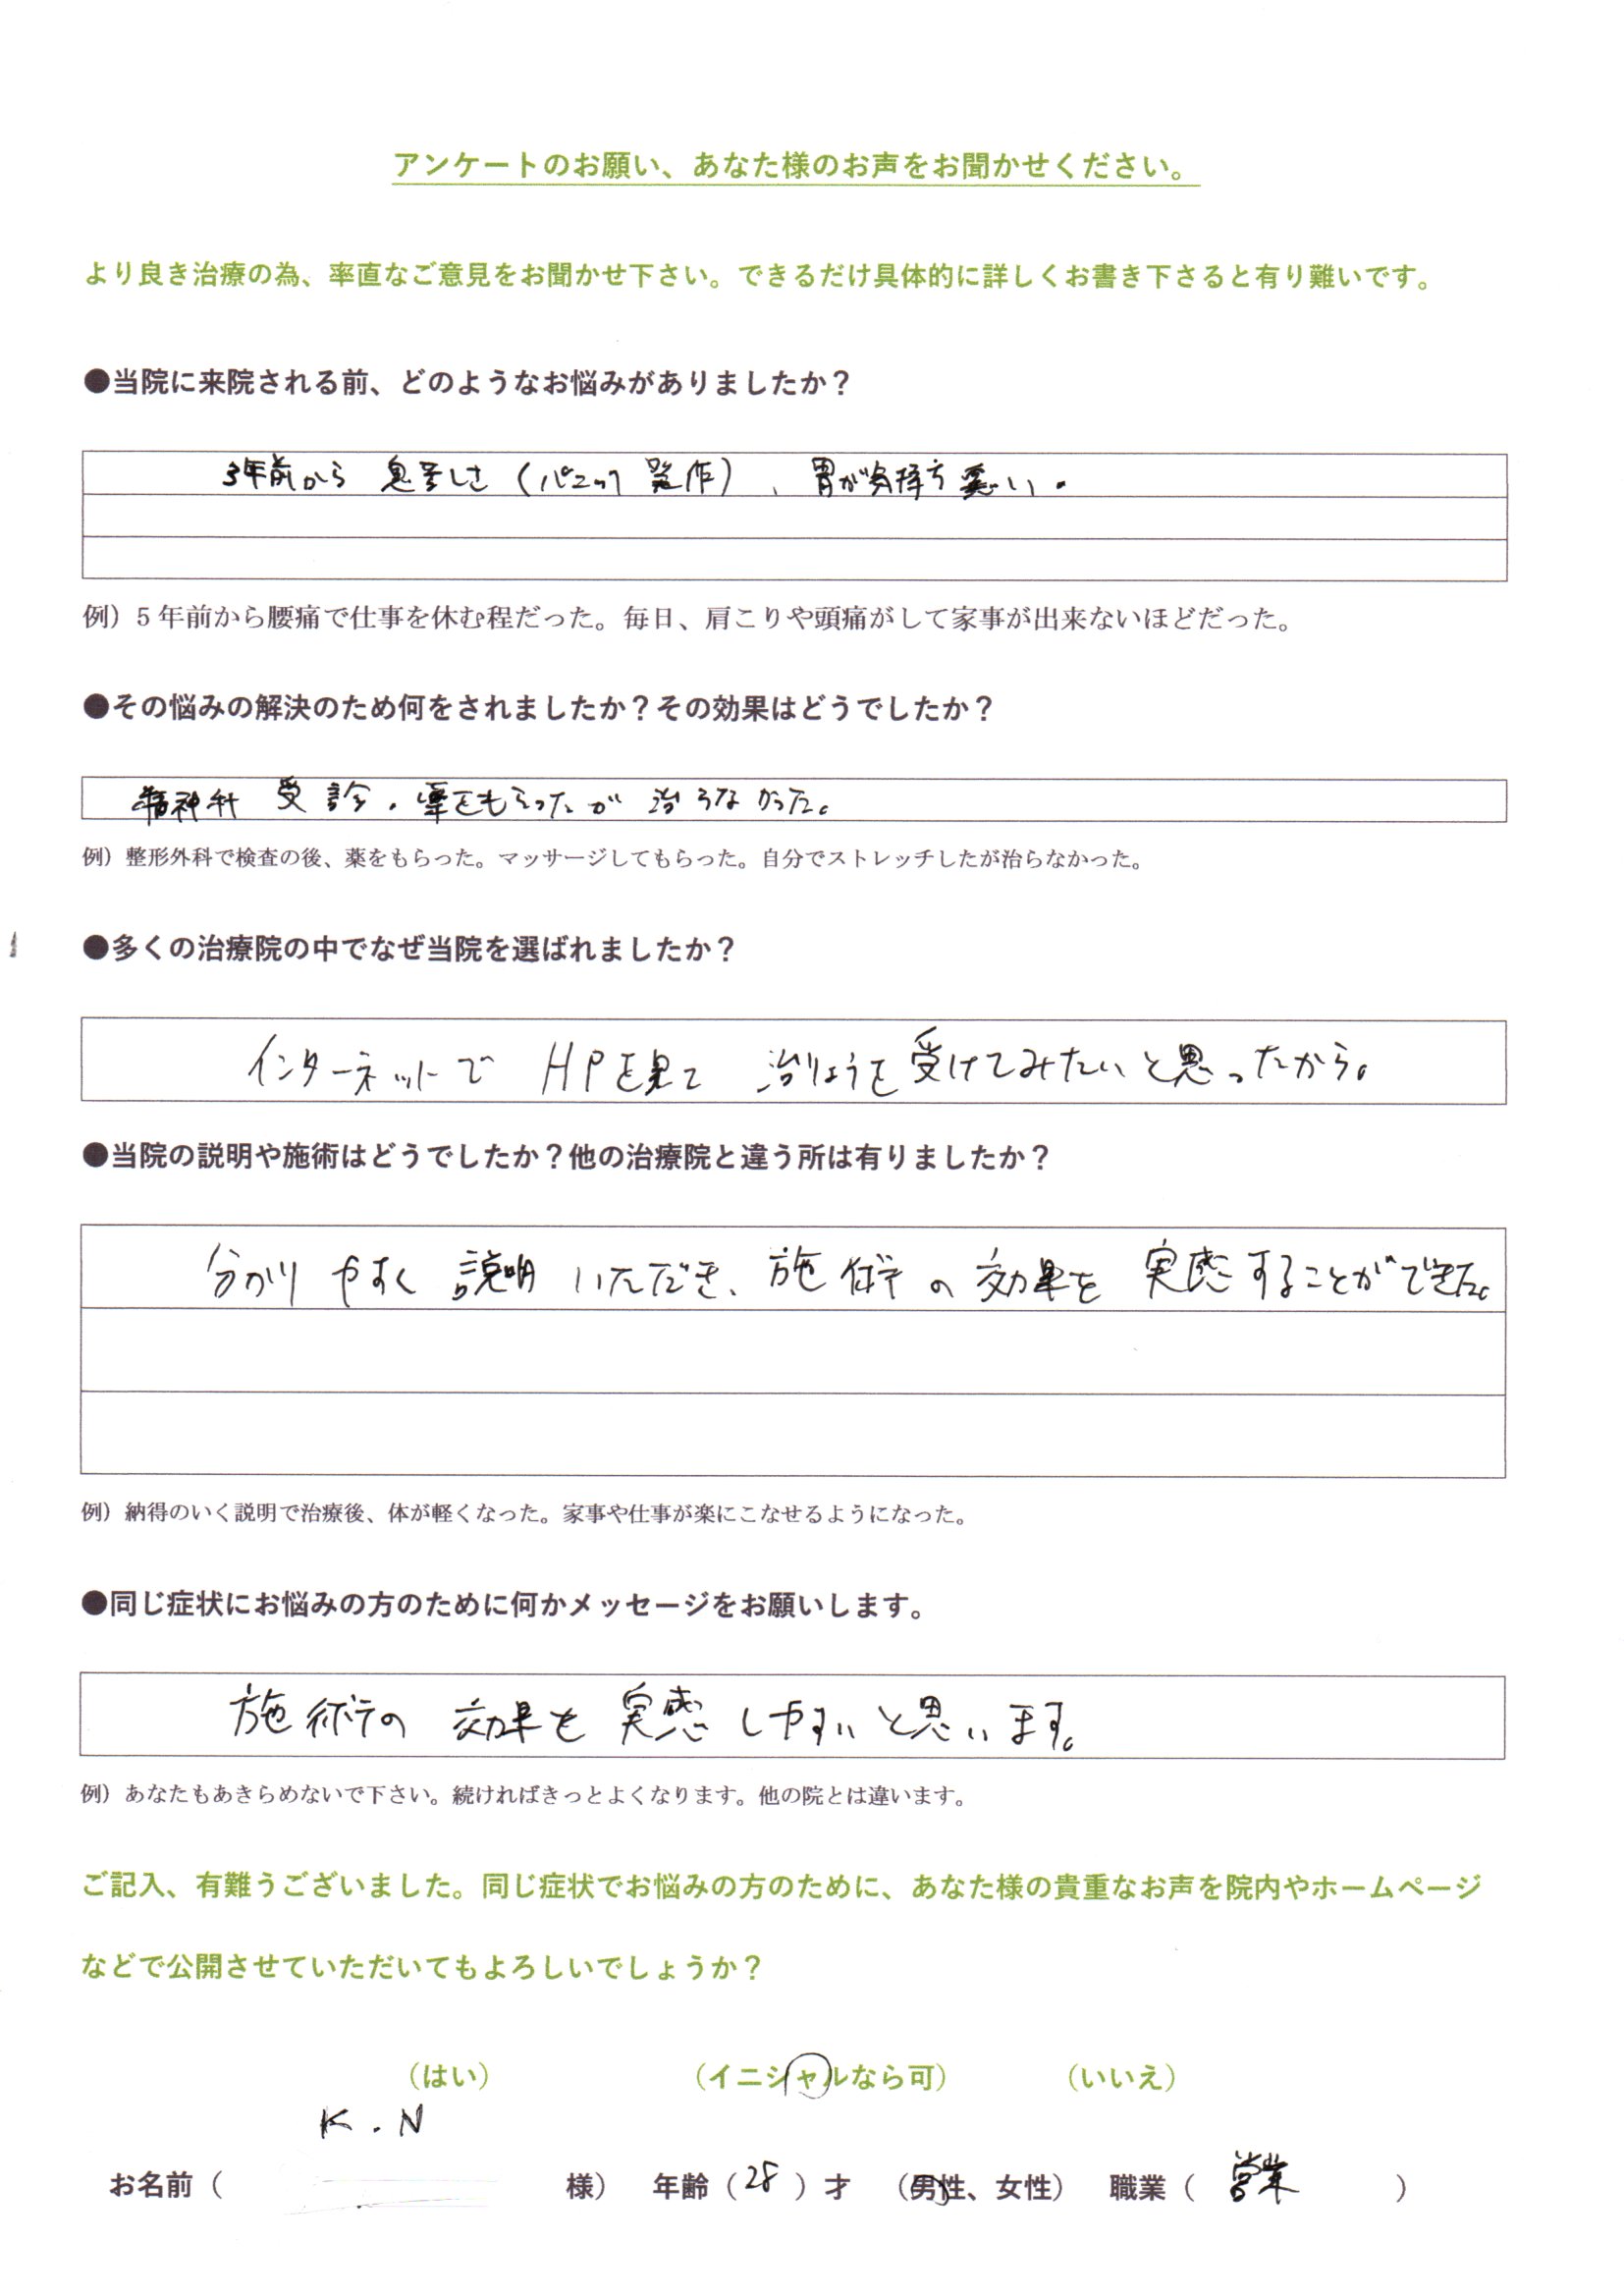 アンケートのお願い、あなた様のお声をお聞かせください。
より良き治療の為、率直なご意見をお聞かせ下さい。できるだけ具体的に詳しくお書き下さると有り難いです。
●当院に来院される前、どのようなお悩みがありましたか？
3年前から 息苦しさ（パニック発作）、胃が気持ち悪い。
例）5年前から腰痛で仕事を休む程だった。毎日、肩こりや頭痛がして家事が出来ないほどだった。
●その悩みの解決のため何をされましたか？その効果はどうでしたか？
精神科 受診。薬をもらったが 治らなかった。
例）整形外科で検査の後、薬をもらった。マッサージしてもらった。自分でストレッチしたが治らなかった。
●多くの治療院の中でなぜ当院を選ばれましたか？
インターネットで HPを見て 治りょうを受けてみたいと思ったから。
●当院の説明や施術はどうでしたか？他の治療院と違う所は有りましたか？
分かりやすく 説明いただき、施術の効果を実感することができた。
例）納得のいく説明で治療後、体が軽くなった。家事や仕事が楽にこなせるようになった。
●同じ症状にお悩みの方のために何かメッセージをお願いします。
施術の 効果を 実感しやすいと思います。
例）あなたもあきらめないで下さい。続ければきっとよくなります。他の院とは違います。
ご記入、有難うございました。同じ症状でお悩みの方のために、あなた様の貴重なお声を院内やホームページ
などで公開させていただいてもよろしいでしょうか？
（はい） （イニシャルなら可） （いいえ）
K.N
お名前（ 様） 年齢（28）才 （男性、女性） 職業（営業）